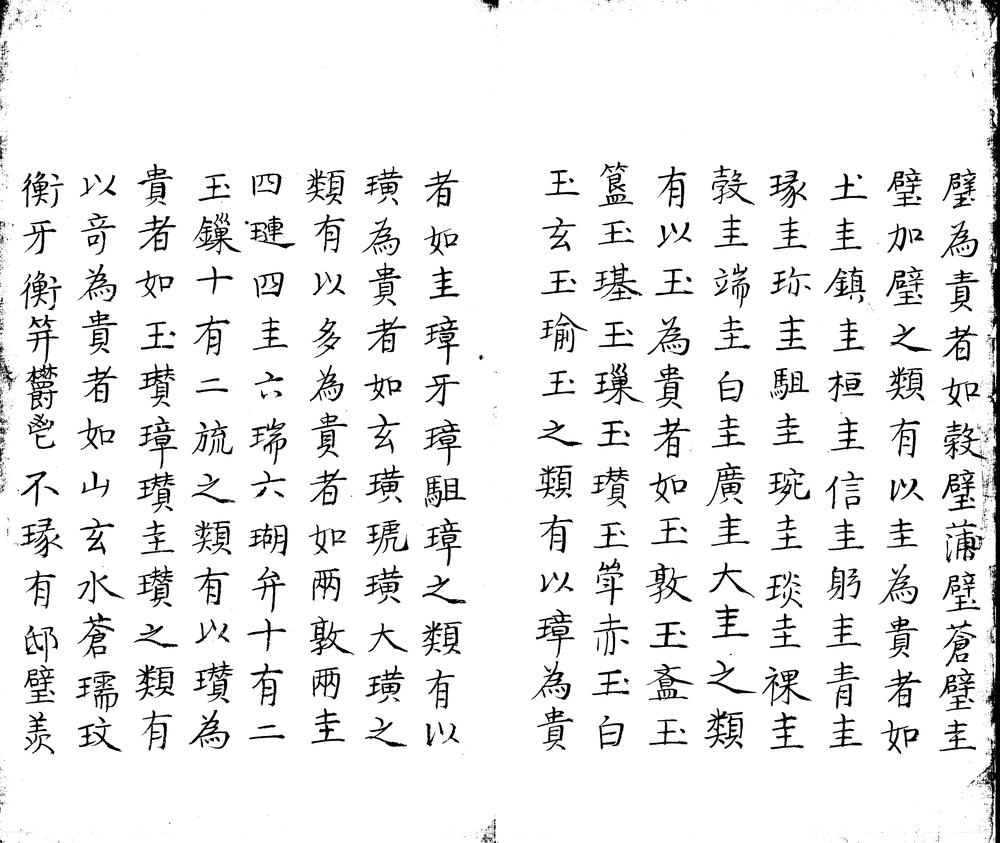 璧為貴者如穀璧蒲璧蒼璧圭
璧加璧之類有以圭為貴者如
土圭鎮圭桓圭信圭躬圭青圭
瑑圭珎圭駔圭琬圭琰圭祼圭
穀圭端圭白圭廣圭大圭之類
有以玉為貴者如玉敦玉齍玉
簋玉璂玉璅玉瓚玉斝赤玉白
玉玄玉瑜玉之類有以璋為貴
者如圭璋牙璋駔璋之類有以
璜為貴者如玄璜琥璜大璜之
類有以多為貴者如兩敦兩圭
四璉四圭六瑞六瑚弁十有二
玉鏁十有二旒之類有以瓚為
貴者如玉瓚璋瓚圭瓚之類有
以奇為貴者如山玄水蒼瓀玟
衡牙衡笄欝鬯不瑑有邸璧羨